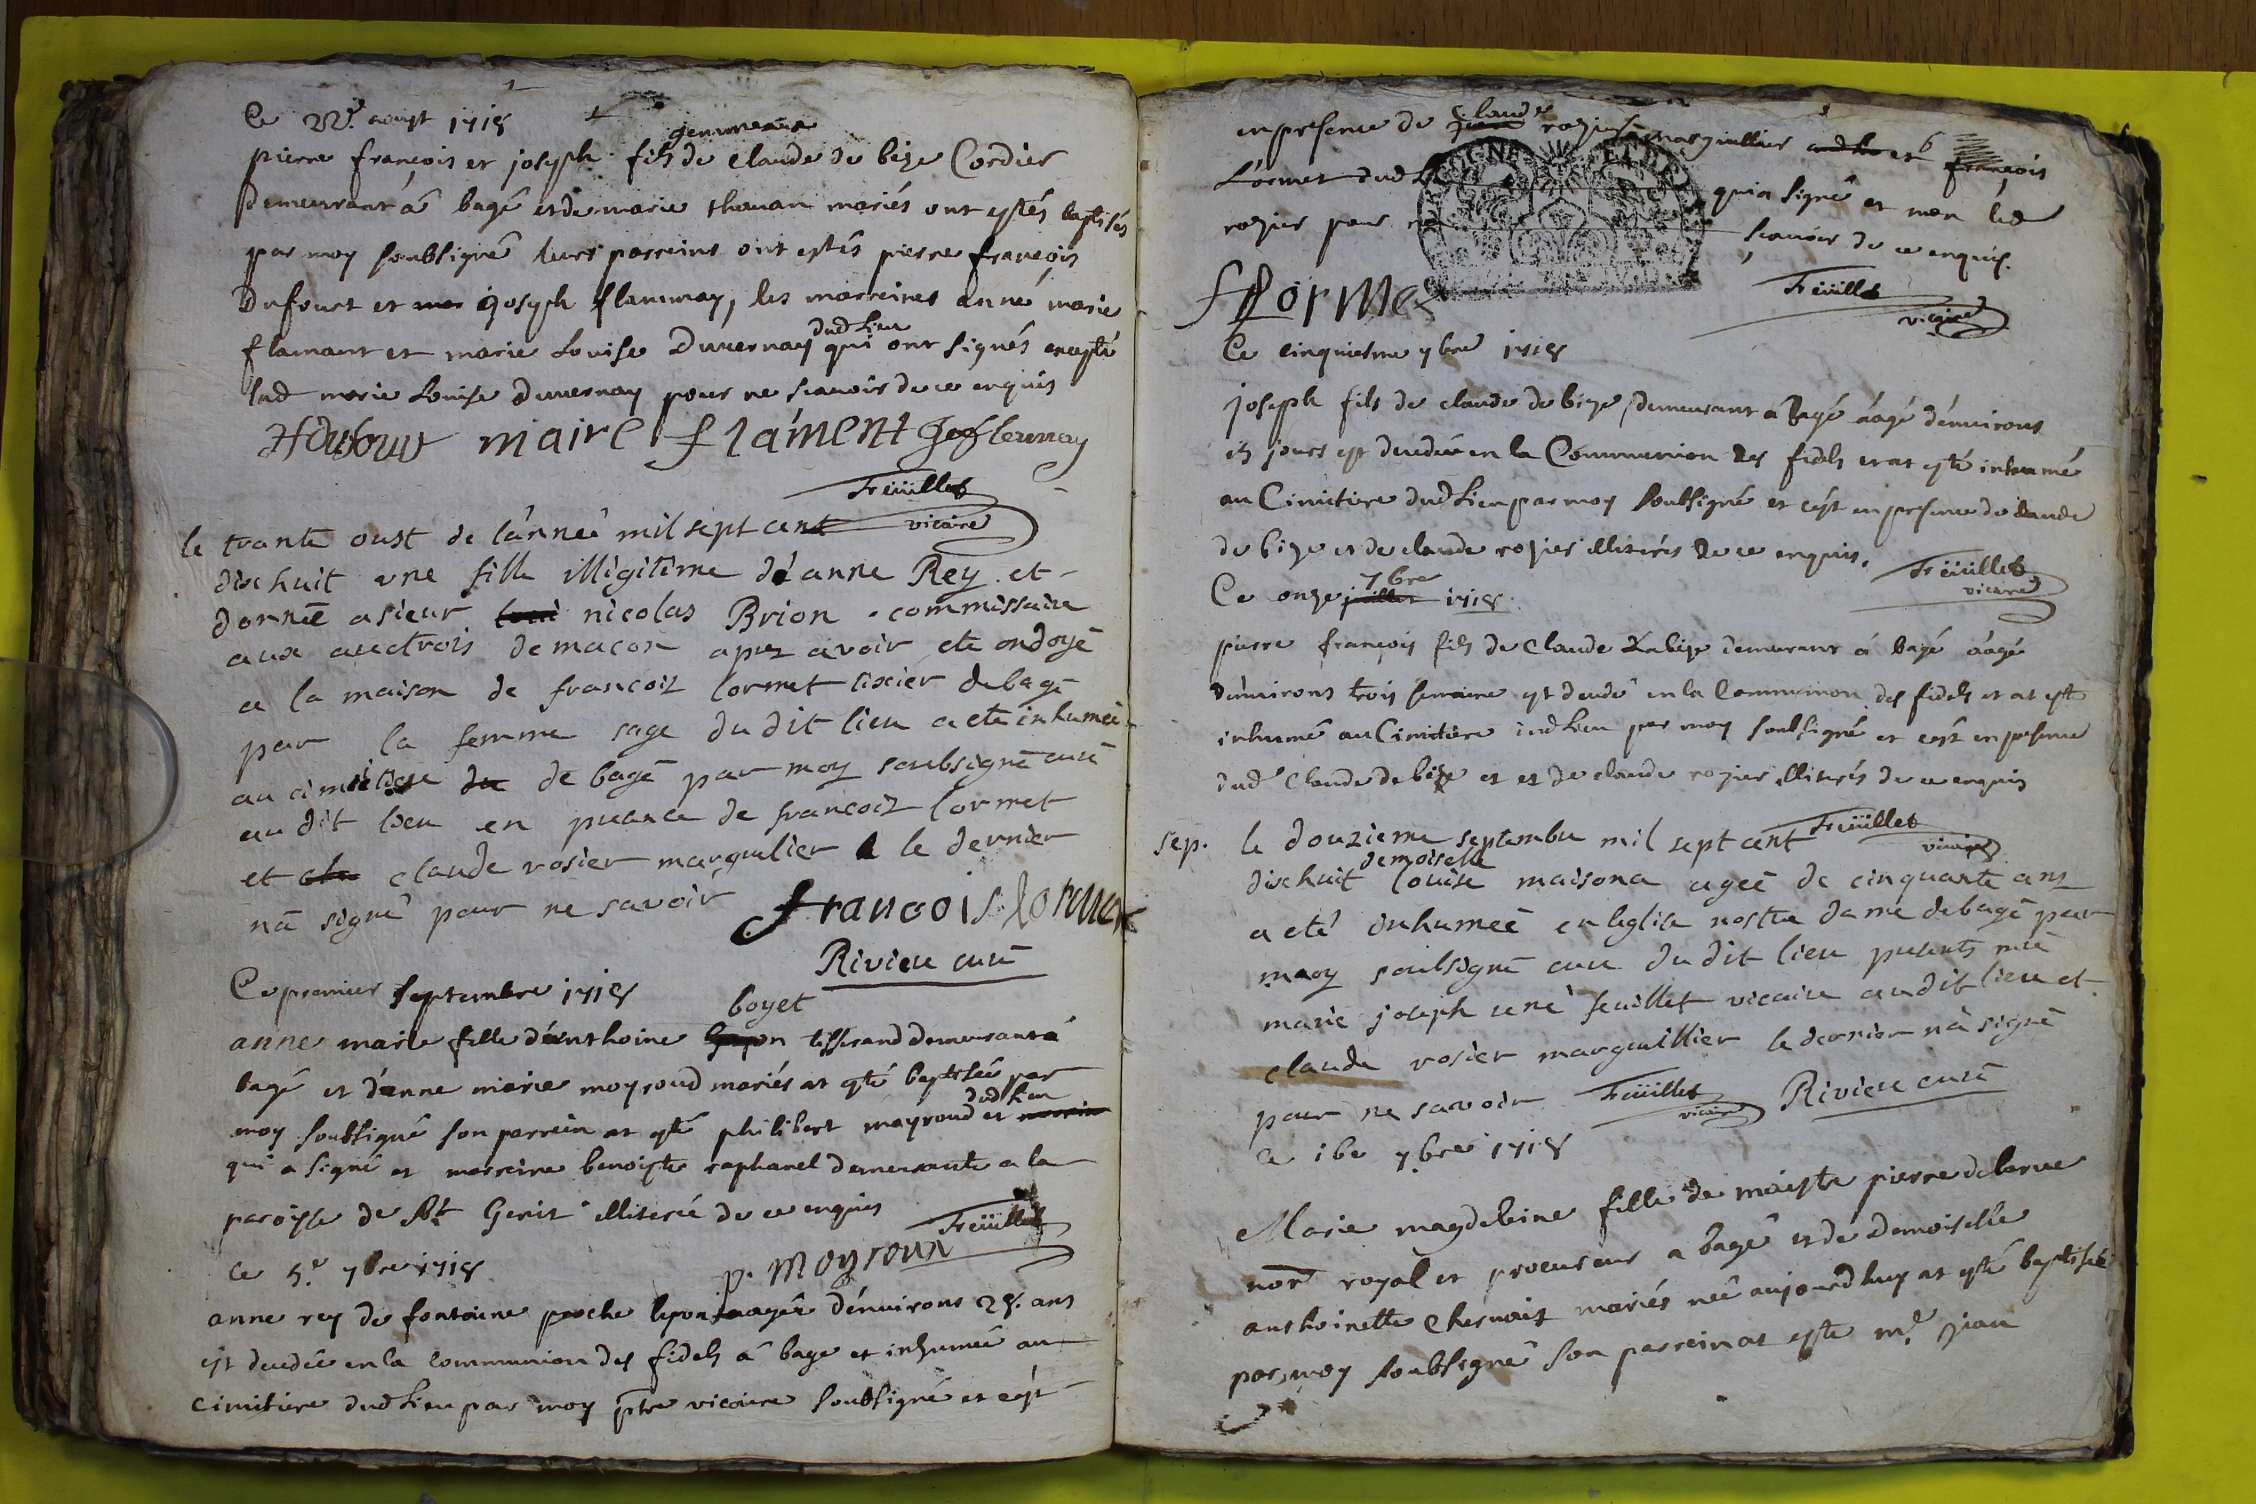 Ce 22e. aoust 1718
gemmeaux
pierre françois et joseph fils de claude de bize Cordier
demeurant á bagé et de marie thouan mariés ont estés baptisés
par moy soubsigné leurs parreins ont estés pierre françois
Dufourt et joseph flaunnay, les marreines anne marie
dud Lieu
flamant et marie Louise Duvernay qui ont signés excepté
lad marie Louise Duvernay pour ne scavoir de ce enquis
maire flament
Feüillet
vicaire
le trante oust de l'année mil sept cent
dix huit une fille illigitime d'anne Rey et
donnée a sieur nicolas Brion commissaire
aux auctrois de macon apres avoir ete ondoyé
a la maison de francois lormet tixier de bagé
par la femme sage du dit lieu a ete inhumeé
au cimitiere de bagé par moy soubsigné curé
au dit lieu en presance de francois lormet
et claude rosier margulier le dernier
n'a signé pour ne savoir
francois lormet
Riviere curé
Ce premier septembre 1718
boyet
anne marie fille d'anthoine tisserand demeurant á
bagé et d'anne marie moyroud mariés at esté baptisée par
dud Lieu
moy soubsigné son parrein at esté philibert mayroud et
qui a signé et marreine benoiste raphanel demeurante a la
paroisse de St Genis illiterée de ce enquis
Feüillet
p. moyroux
Ce 5e 7bre 1718
anne rey de fontaine proche lyon aagée d'environs 28. ans
est decedée en la communion des fidels á bage et inhumée au
cimitiere dud Lieu par moy ptre vicaire soubsigné et c'est
claude
en presence de rozier marguillier et françois
Lormet dud L qui a signé et non led
rozier pour scavoir de ce enquis.
f lormet
Feüillet
vicaire
Ce cinquiesme 7bre 1718
joseph fils de claude de bize demeurant á bagé áagé d'environs
jours est decedé en la Communion des fidels et at esté inhumé
au Cimitiere dud Lieu par moy soubsigné et c'est en presence de claude
de bize et de claude rozier illiterés de ce enquis.
Feüillet
vicaire
7bre
Ce onze juillet 1718
pierre françois fils de Claude de bize demeurant á bagé áagé
d'environs trois semaine est decedé en la Communion des fidels et at esté
inhumé au Cimitiere dud Lieu par moy soubsigné et c'est en presence
dud Claude de bize et et de claude rozier illiterés de ce enquis
Feüillet
vicaire
sep. le douzieme septembre mil sept cent
demoiselle
dix huit louise maisona ageé de cinquante ans
a eté inhumeé en l'eglise nostre dame de bagé par
moy soubsigné curé du dit lieu presents
marie joseph rené feuillet vicaire au dit lieu et
claude rosier marguillier le dernier n'a signé
pour ne savoir
Feüillet
vicaire
Riviere curé
Ce 16e 7bre 1718
Marie magdeleine fille de maistre pierre delarue
notre royal et procureur a bagé et de Demoiselle
anthoinette Chesnois mariés née aujourd'huy at esté baptisée
par moy soubsigné son parrein at esté me. jean